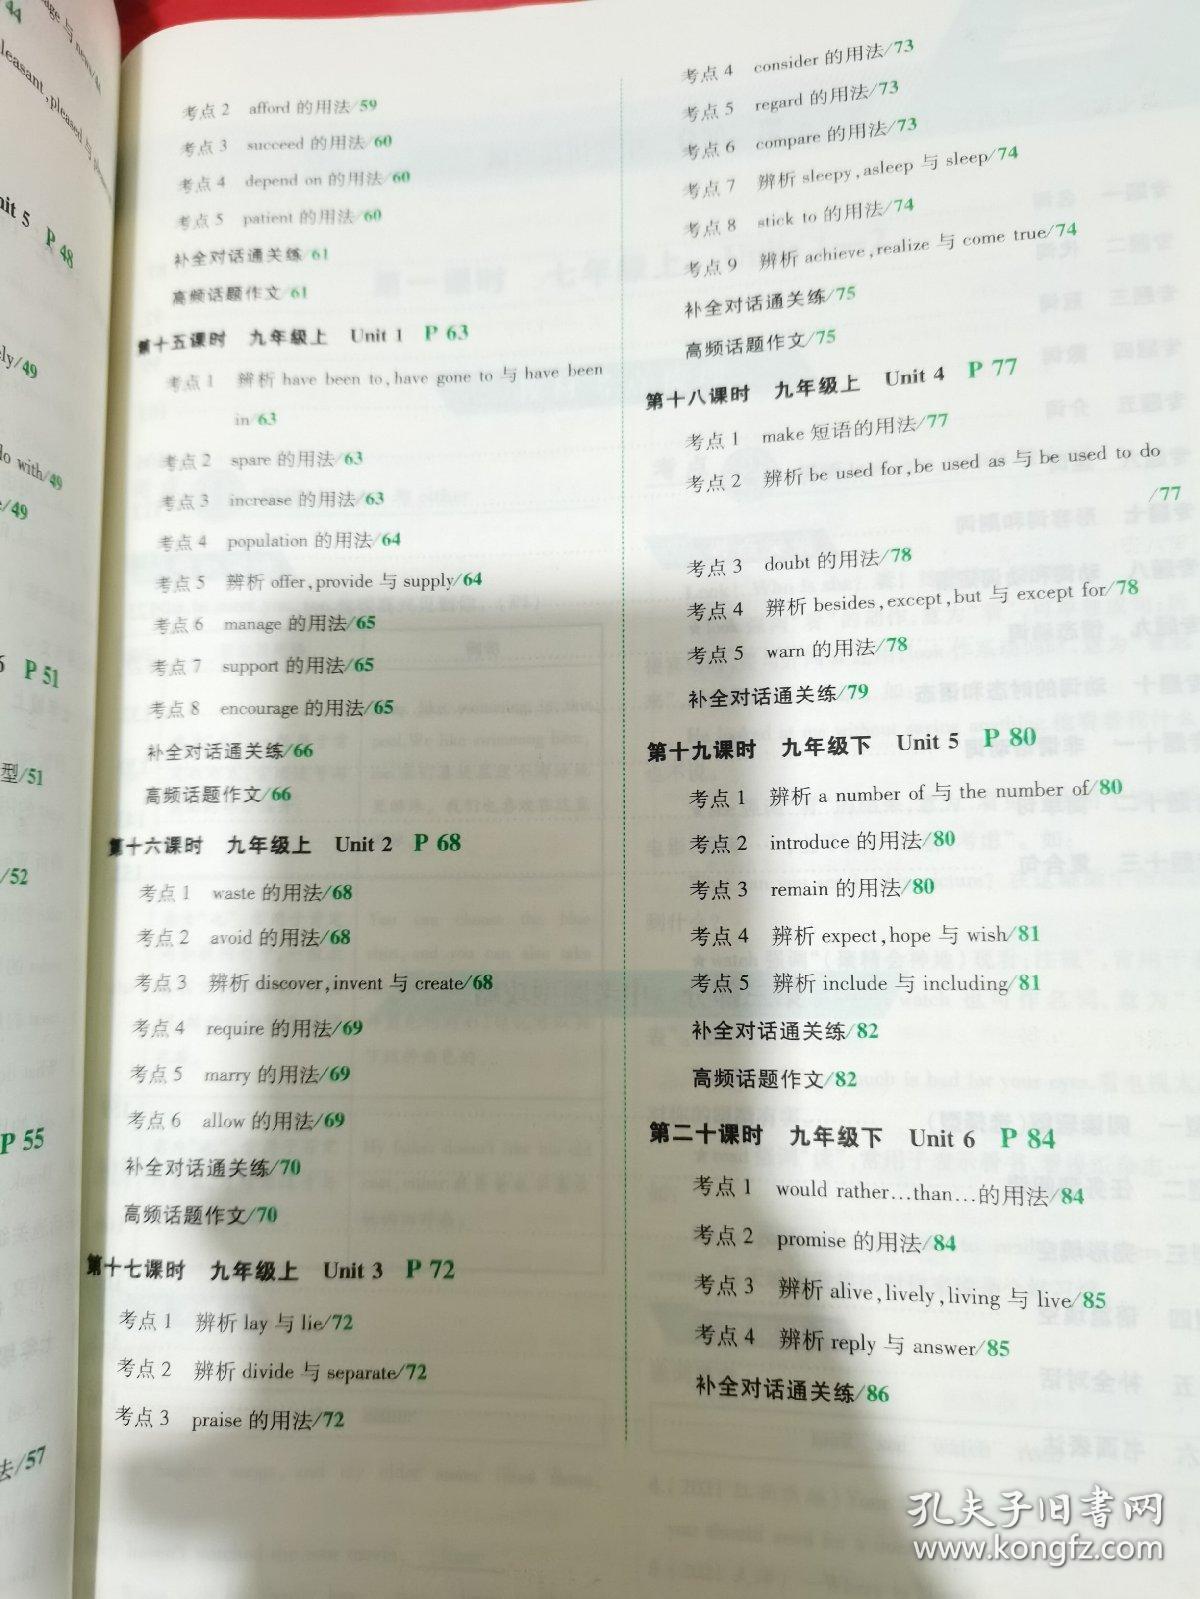 44
age 与 news/44
leasant,pleased 与
nit 5 P 48
ely/49
do with/49
e/49
P 51
型/51
/52
P 55
法/57
考点2 afford 的用法/59
考点3 succeed 的用法/60
考点4 depend on 的用法/60
考点5 patient 的用法/60
补全对话通关练/61
高频话题作文/61
第十五课时 九年级上 Unit 1 P 63
考点1 辨析 have been to,have gone to 与 have been
in/63
考点2 spare 的用法/63
考点3 increase 的用法/63
考点4 population 的用法/64
考点5 辨析 offer,provide 与 supply/64
考点6 manage 的用法/65
考点7 support 的用法/65
考点8 encourage 的用法/65
补全对话通关练/66
高频话题作文/66
第十六课时 九年级上 Unit 2 P 68
考点1 waste 的用法/68
考点2 avoid 的用法/68
考点3 辨析 discover,invent 与 create/68
考点4 require 的用法/69
考点5 marry 的用法/69
考点6 allow 的用法/69
补全对话通关练/70
高频话题作文/70
第十七课时 九年级上 Unit 3 P 72
考点1 辨析 lay 与 lie/72
考点2 辨析 divide 与 separate/72
考点3 praise 的用法/72
考点4 consider 的用法/73
考点5 regard 的用法/73
考点6 compare 的用法/73
考点7 辨析 sleepy,asleep 与 sleep/74
考点8 stick to 的用法/74
考点9 辨析 achieve,realize 与 come true/74
补全对话通关练/75
高频话题作文/75
第十八课时 九年级上 Unit 4 P 77
考点1 make 短语的用法/77
考点2 辨析 be used for,be used as 与 be used to do
/77
考点3 doubt 的用法/78
考点4 辨析 besides,except,but 与 except for/78
考点5 warn 的用法/78
补全对话通关练/79
第十九课时 九年级下 Unit 5 P 80
考点1 辨析 a number of 与 the number of/80
考点2 introduce 的用法/80
考点3 remain 的用法/80
考点4 辨析 expect,hope 与 wish/81
考点5 辨析 include 与 including/81
补全对话通关练/82
高频话题作文/82
第二十课时 九年级下 Unit 6 P 84
考点1 would rather…than…的用法/84
考点2 promise 的用法/84
考点3 辨析 alive,lively,living 与 live/85
考点4 辨析 reply 与 answer/85
补全对话通关练/86
孔夫子旧书网
www.kongfz.com